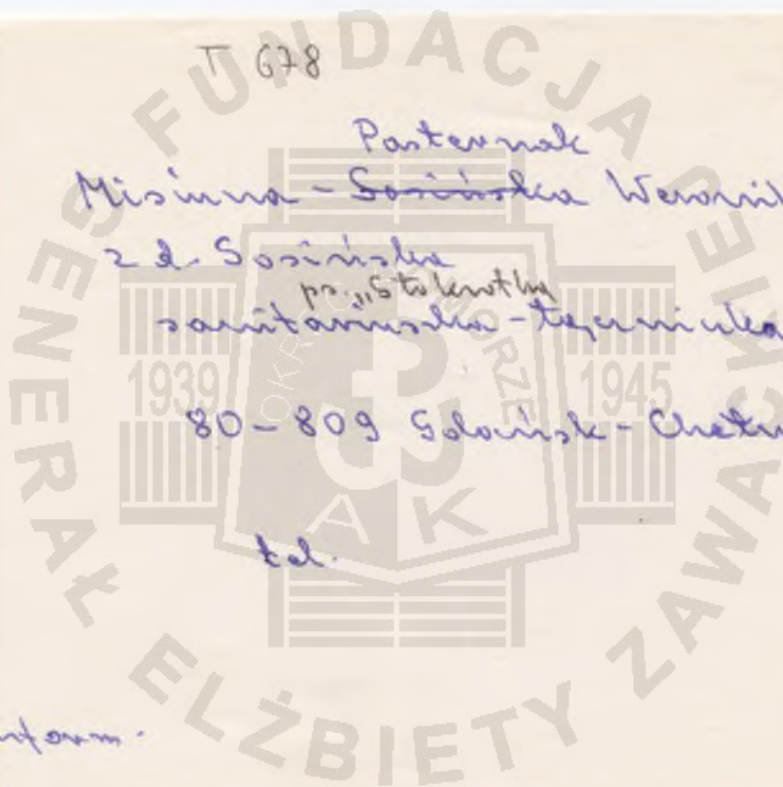 T 678
Pasternak
Misiuna - Sosińska Weroni
z d. Sosińska
ps. „Stokrotka
sanitariuszka - łączniczka
80-809 Gdańsk - Chełm
tel.
inform.
FUNDACJA GENERAŁ ELŻBIETY ZAWACKIEJ
1939 1945
OKRĘG POMORZE
AK